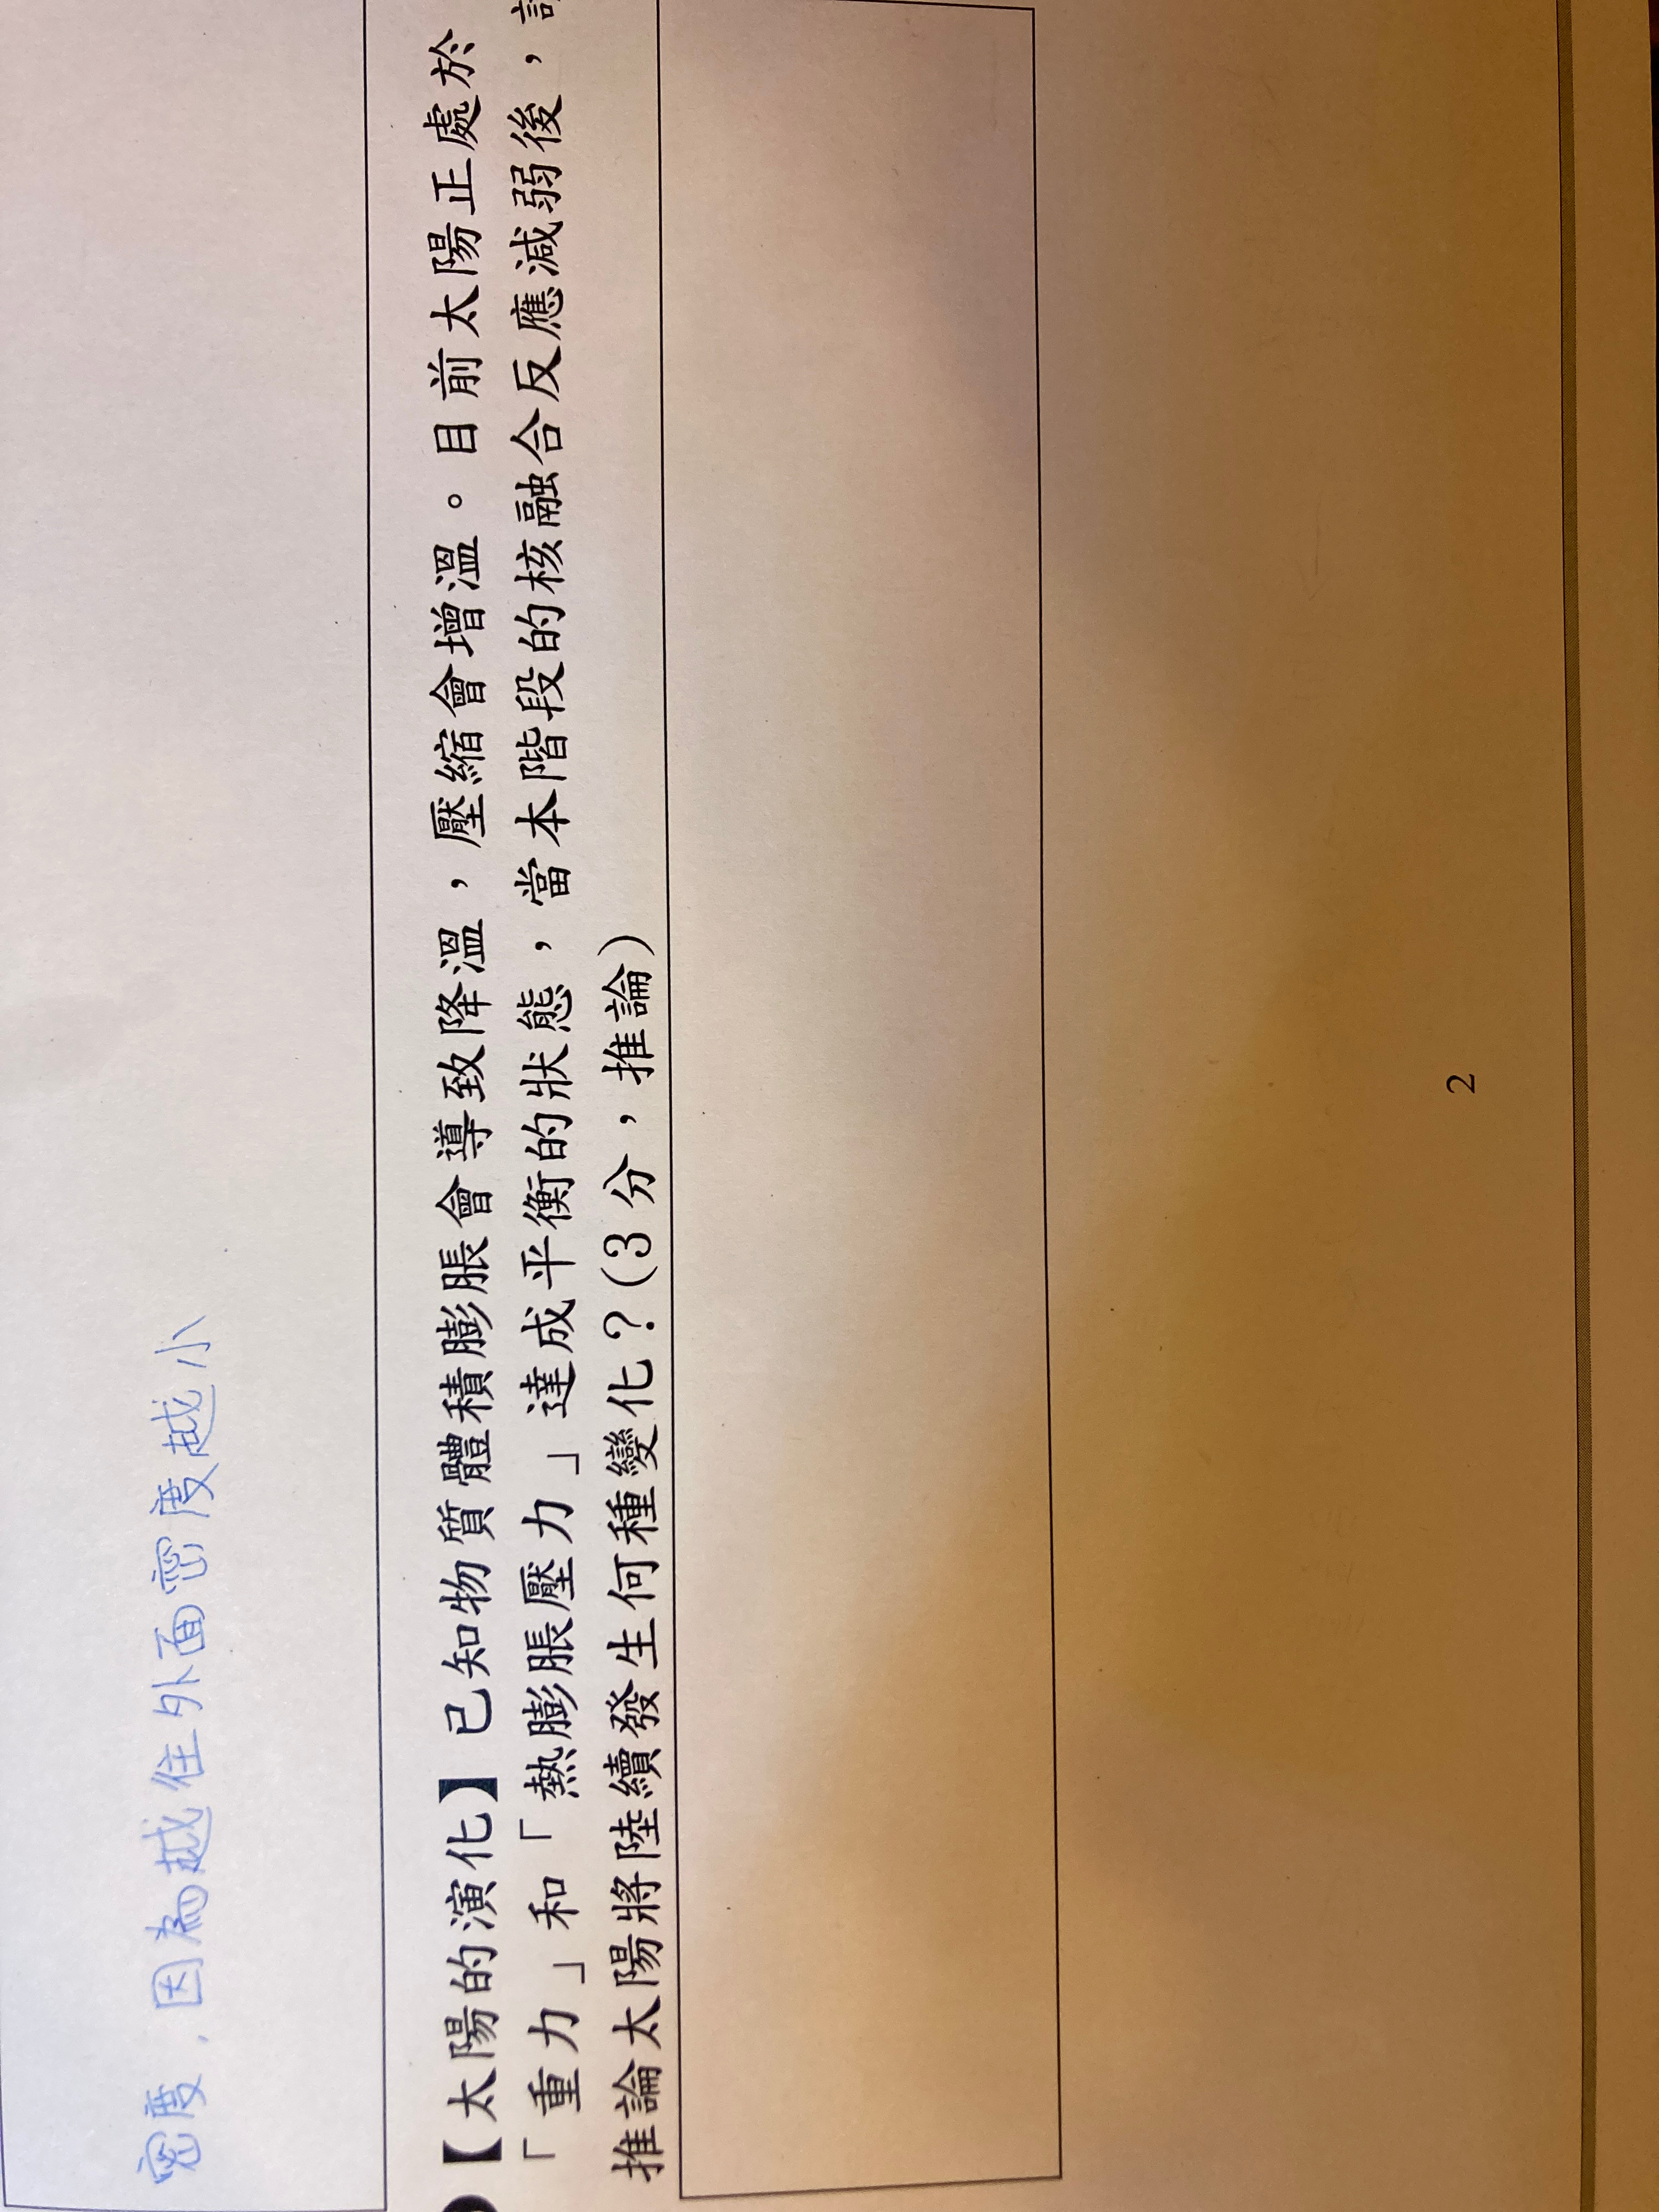 密度，因為越住外面密度越小
【太陽的演化】已知物質體積膨脹會導致降溫，壓縮會增溫。目前太陽正處於
「重力」和「熱膨脹壓力」達成平衡的狀態，當本階段的核融合反應減弱後，
推論太陽將陸續發生何種變化？(3分，推論)
2